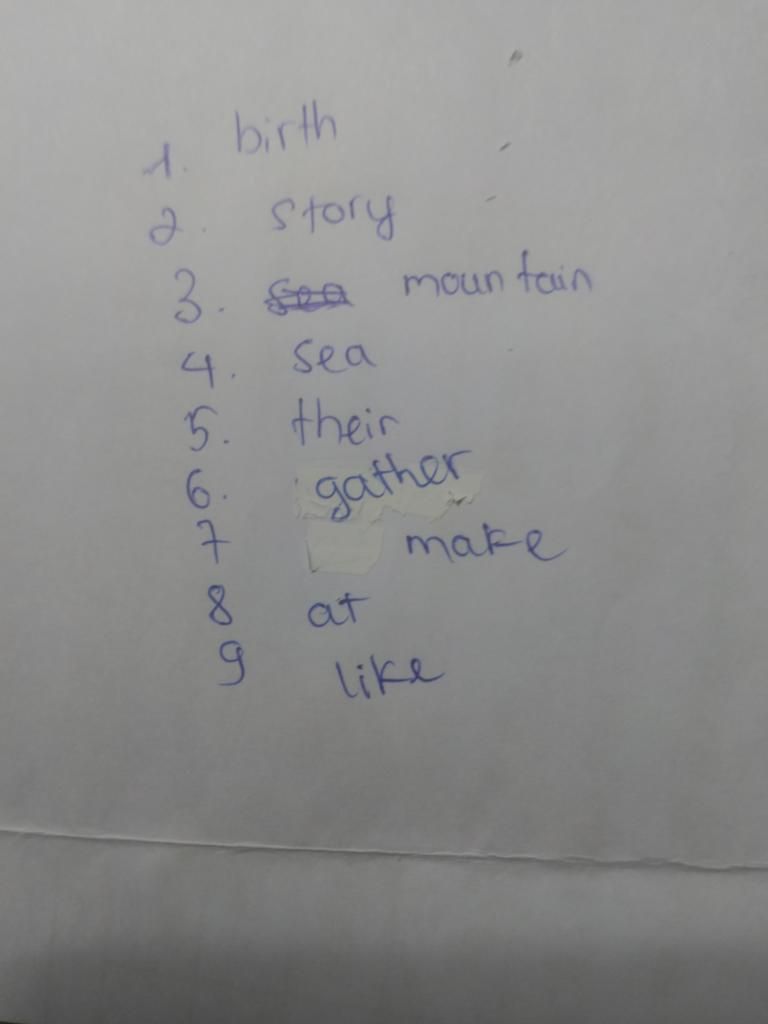 1. birth
2. story
3. sea mountain
4. sea
5. their
6. gather
7 make
8 at
9 like